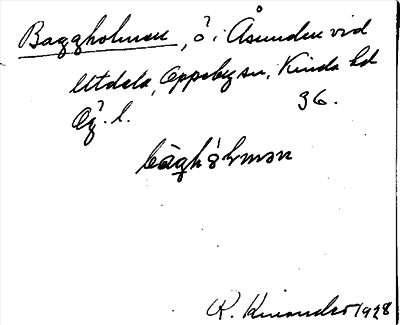 Baggholmen, ö i Åsunden vid
Utdala, Oppeby sn, Kinda hd
Ög. l. 36.
bàghólmən
R. Kinander 1928